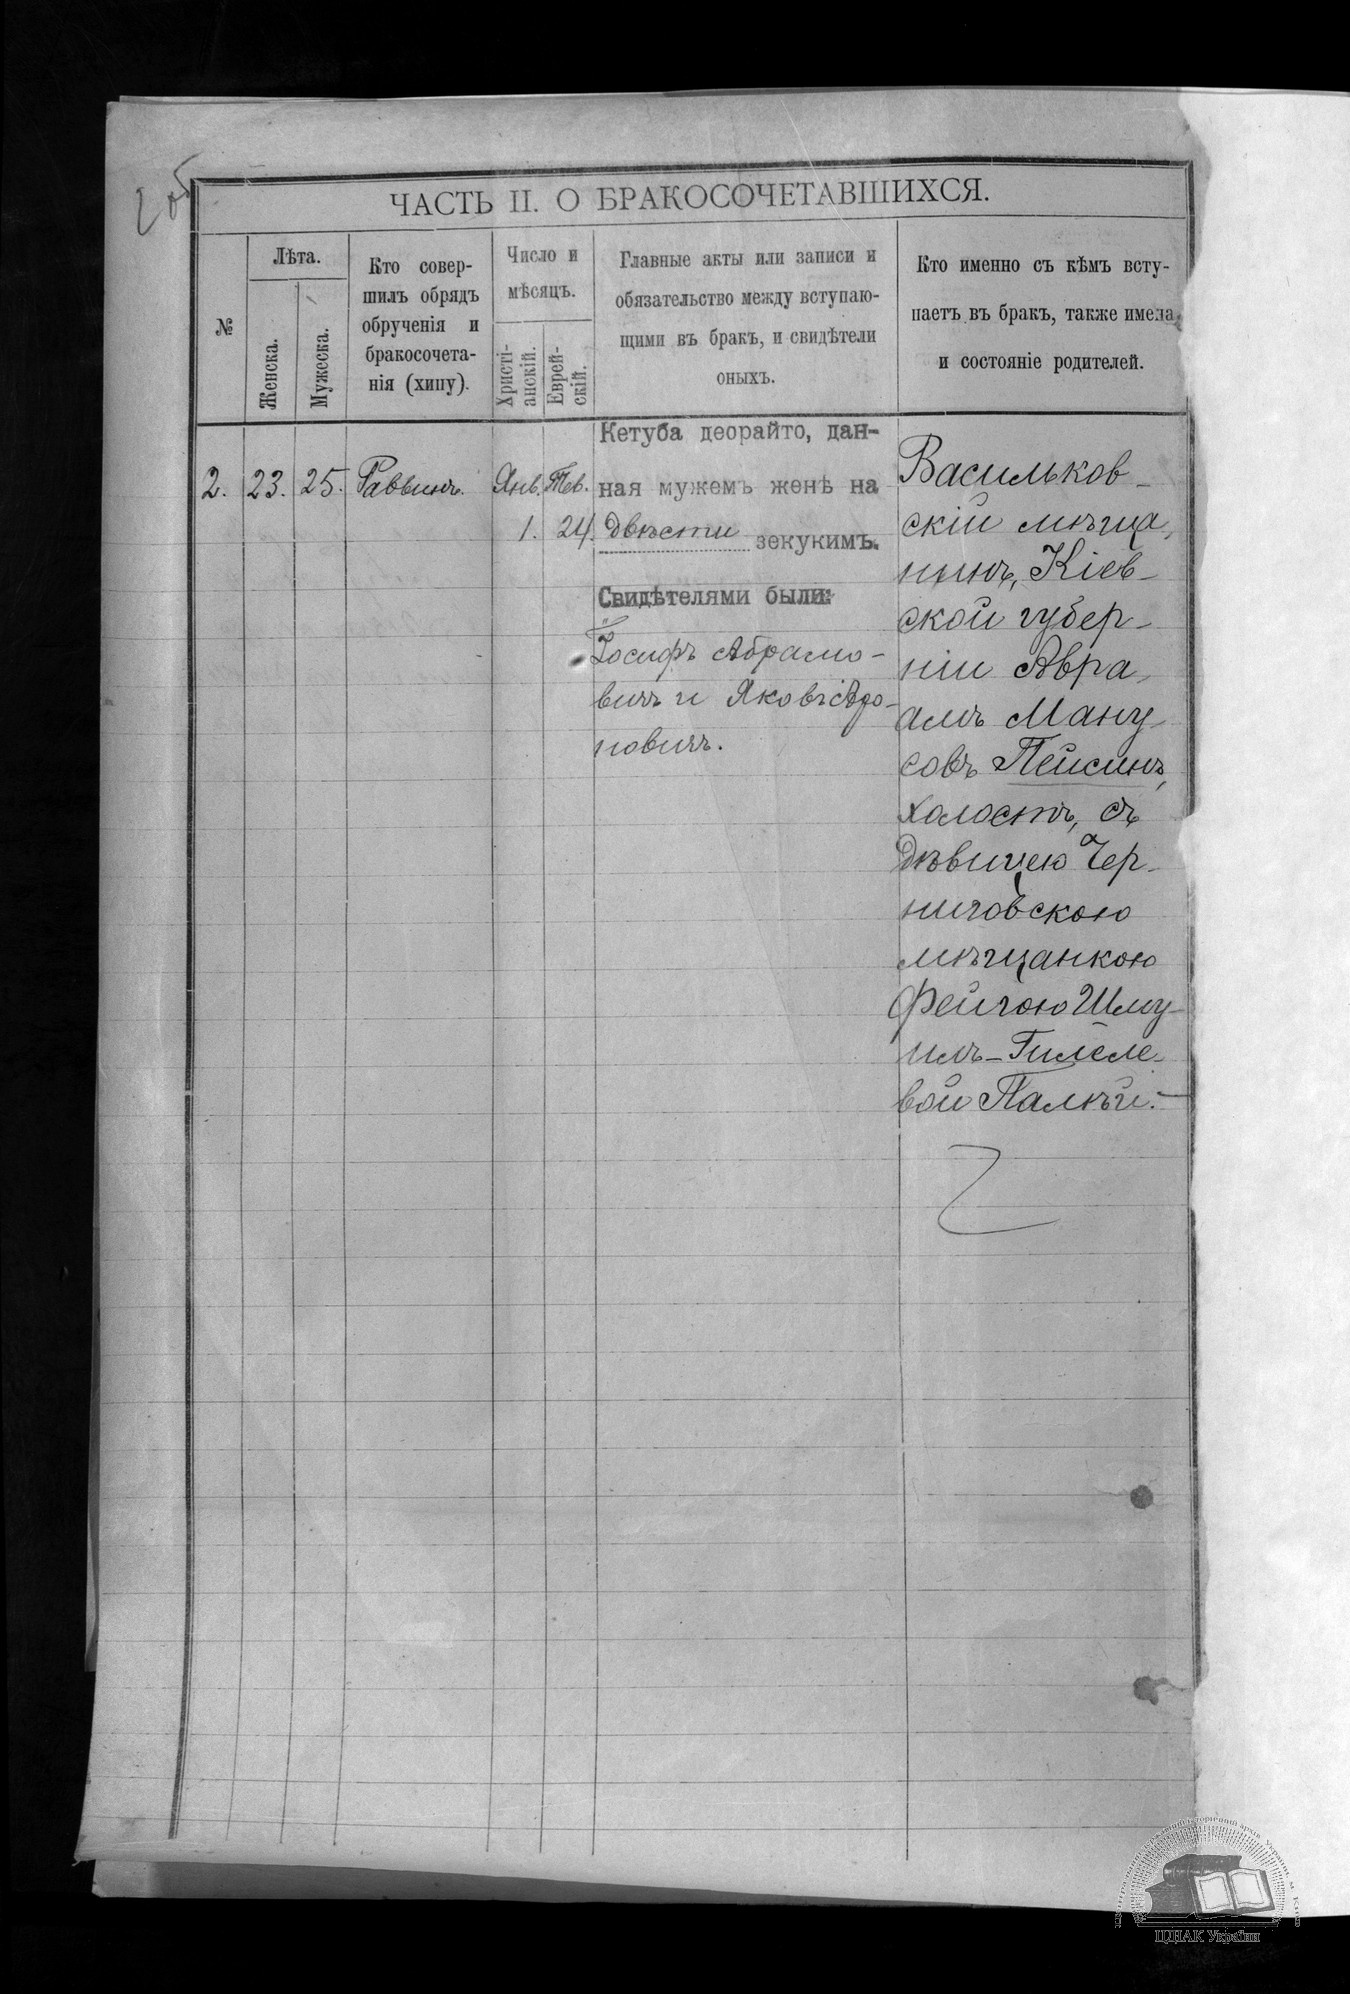 2 об
ЧАСТЬ II. О БРАКОСОЧЕТАВШИХСЯ.
№
Лѣта.
Женска.
Мужеска.
Кто совер-
шилъ обрядъ
обрученія и
бракосочета-
нія (хипу).
Число и
мѣсяцъ.
Христі-
анскій.
Еврей-
скій.
Главные акты или записи и
обязательство между вступаю-
щими въ бракъ, и свидѣтели
оныхъ.
Кто именно съ кѣмъ всту-
паетъ въ бракъ, также имена
и состояніе родителей.
2.
23.
25.
Раввинъ.
Янв.
1.
Тев.
24.
Кетуба деорайто, дан-
ная мужемъ женѣ на
двѣсти зекукимъ.
Свидѣтелями были:
Іосифъ Абрамо-
вичъ и Яковъ Аро-
новичъ.
Васильков-
скій мѣща-
нинъ, Кіев-
ской губер-
ніи Авра-
амъ Ману-
совъ Пейсинъ,
холостъ, съ
дѣвицею Чер-
ниговскою
мѣщанкою
Фейгою Шму-
илъ-Гилеле-
вой Палѣй.
ЦДІАК України